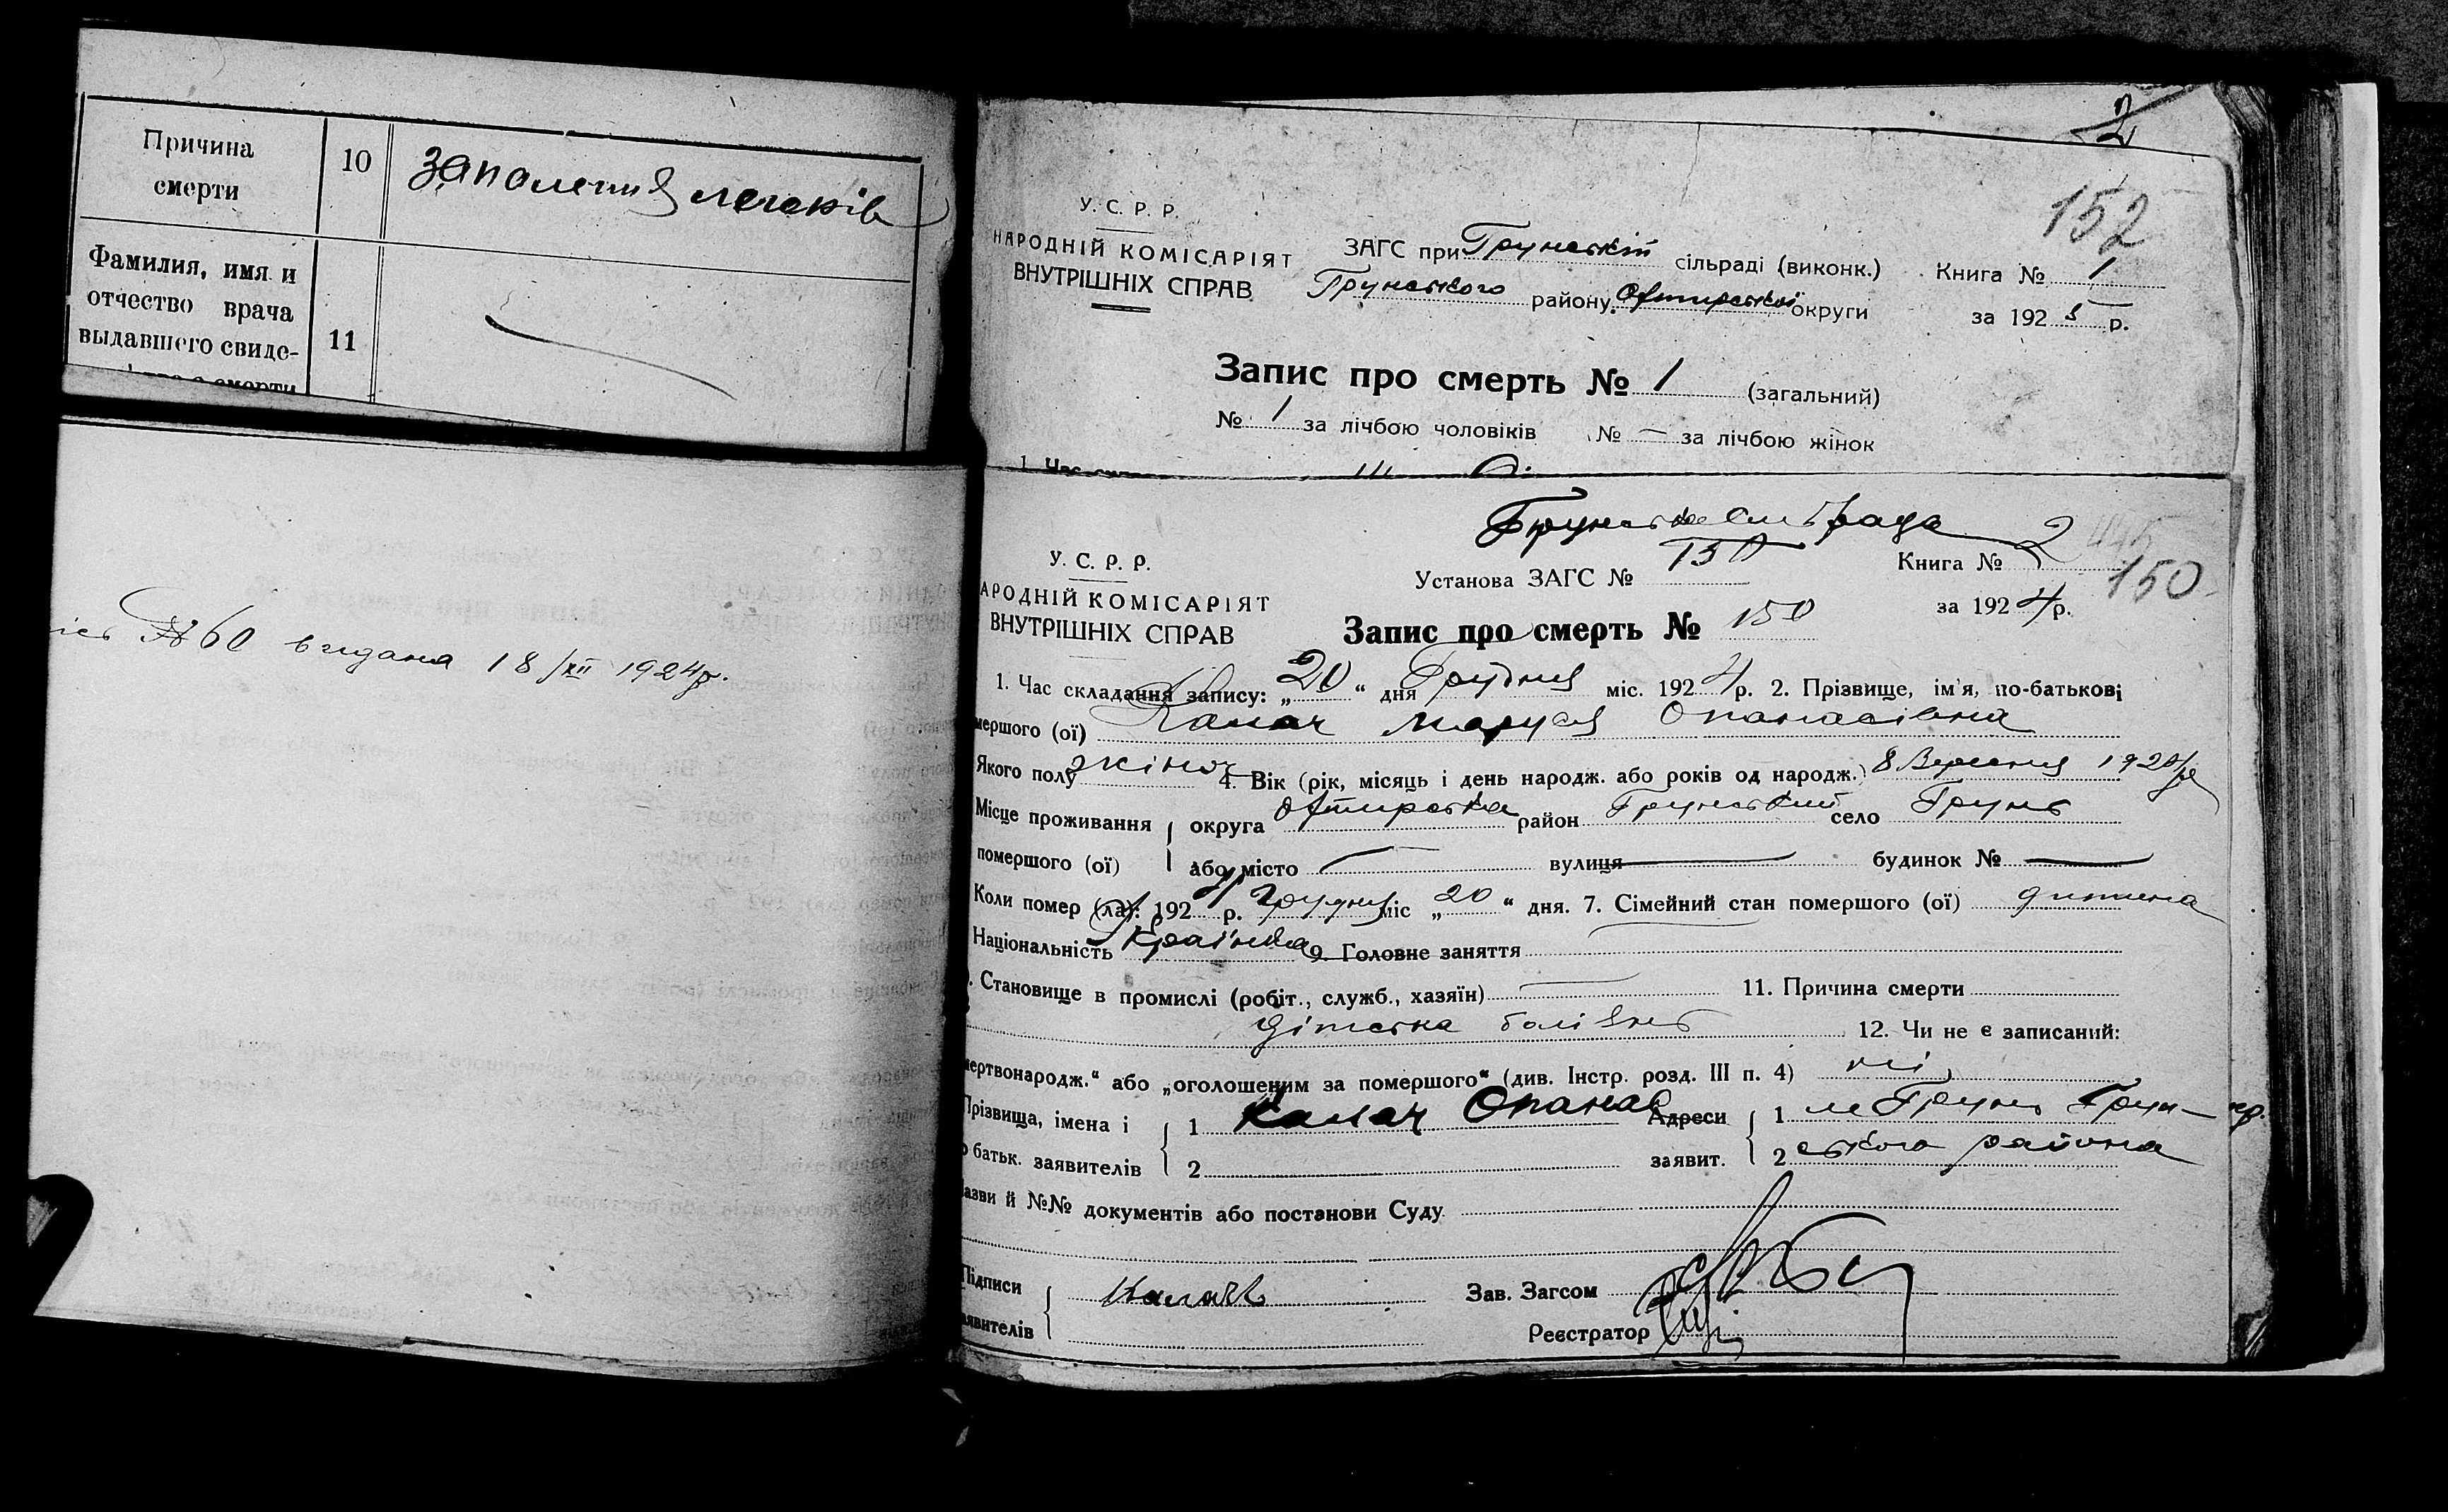 Причина
смерти
10
запалення легенів
Фамилия, имя и
отчество врача
выдавшего свиде-
11
№ 60 видана 18/XII 1924р.
2
152
У. С. Р. Р.
НАРОДНІЙ КОМІСАРІЯТ
ВНУТРІШНІХ СПРАВ
ЗАГС при Грунській сільраді (виконк.)
Грунського району Охтирської округи
Книга № 1
за 1925 р.
Запис про смерть № 1 (загальний)
№ 1 за лічбою чоловіків № — за лічбою жінок
Грунська сільрада
2
У. С. Р. Р.
АРОДНІЙ КОМІСАРІЯТ
ВНУТРІШНІХ СПРАВ
Установа ЗАГС № 150
Книга №
150
за 1924 р.
Запис про смерть № 150
1. Час складання запису: „20“ дня Грудня міс. 1924 р. 2. Прізвище, ім'я, по-батькові
мершого (ої) Калач Маруся Опанасівна
Якого полу жіноч 4. Вік (рік, місяць і день народж. або років од народж.) 8 Вересня 1924р
Місце проживання округа Охтирська район Грунський село Грунь
помершого (ої) або місто — вулиця — будинок № —
Коли помер (ла): 1924 р. Грудня міс „20“ дня. 7. Сімейний стан помершого (ої) дитина
Національність Українка 9. Головне заняття
. Становище в промислі (робіт., служб., хазяїн) — 11. Причина смерти
Дітська болізнь 12. Чи не є записаний:
мертвонародж.“ або „оголошеним за помершого“ (див. Інстр. розд. III п. 4) ні
Прізвища, імена і 1 Калач Опанас Адреси 1 м Грунь Грун-
о батьк. заявителів 2 заявит. 2 ського района
азви й №№ документів або постанови Суду
Підписи Калач Зав. Загсом
аявителів Реєстратор